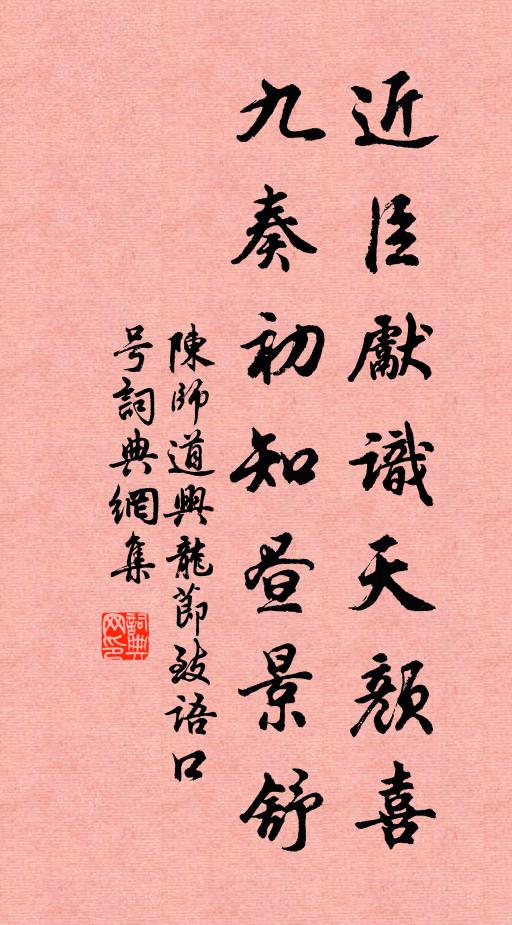 近臣獻識天顏喜
九奏初知晝景舒
陳師道興龍節致語口
号詞典網集
詞典網印